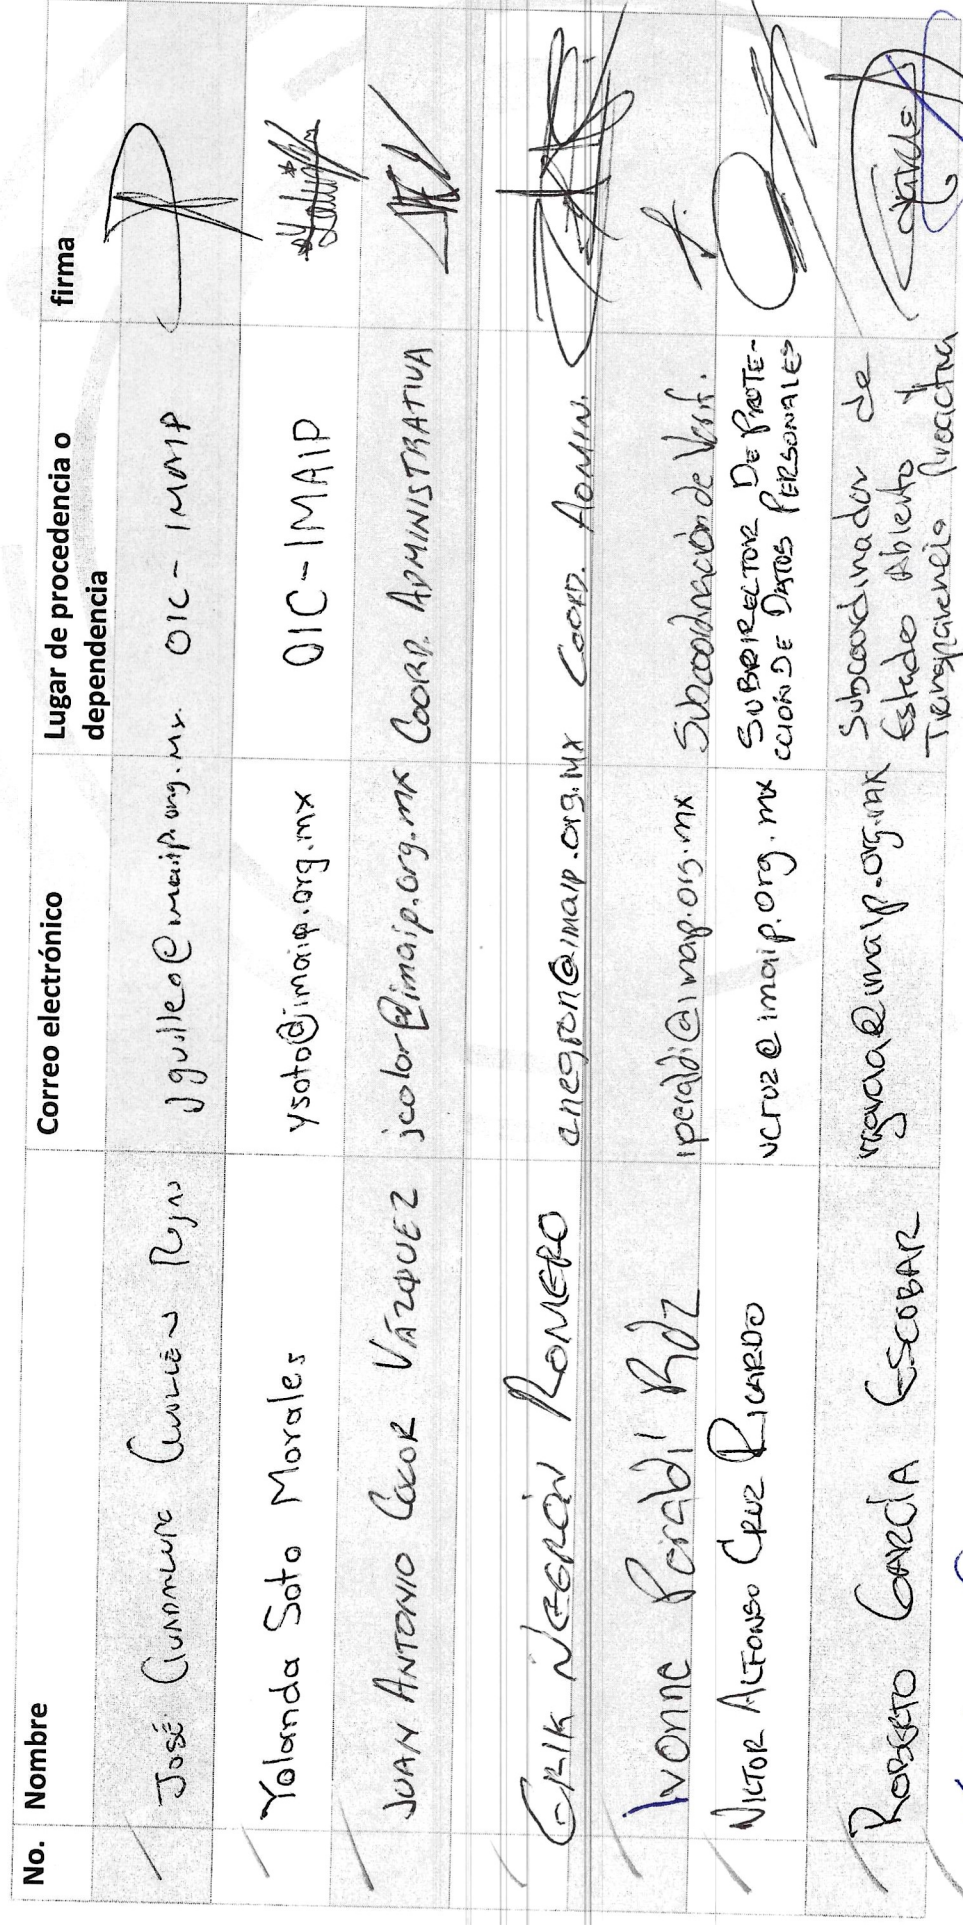 No. Nombre Correo electrónico Lugar de procedencia o dependencia firma
JOSÉ GUADALUPE GUILLÉN ROJAS jguillen@imaip.org.mx OIC - IMAIP
Yolanda Soto Morales ysoto@imaip.org.mx OIC-IMAIP
JUAN ANTONIO COLOR VÁZQUEZ jcolor@imaip.org.mx COORD. ADMINISTRATIVA
ERIK NEGRÓN ROMERO enegron@imaip.org.mx COORD. ADMIN.
Ivonne Peraldí Rdz iperaldi@imaip.org.mx Subcoordinación de Verif.
VICTOR ALFONSO CRUZ RICARDO vcruz@imaip.org.mx SUBDIRECTOR DE PROTE-
CCION DE DATOS PERSONALES
ROBERTO GARCÍA ESCOBAR rgarcia@imaip.org.mx Subcoordinador de
Estado Abierto y
Transparencia Proactiva